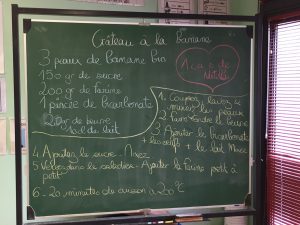 Gâteau à la banane
3 peaux de banane bio
150 gr de sucre
200 gr de farine
1 pincée de bicarbonate
120 gr de beurre
10 cl de lait
1 c à s de
Nutella
1. Coupez, lavez et
mixez les peaux
2. Faire fondre le beurre
3. Ajouter le bicarbonate
+ les œufs + le lait Mixez
4 Ajoutez le sucre - Mixez
5 Versez dans le saladier - Ajouter la farine petit à
petit
6 - 20 minutes de cuisson à 200 °C